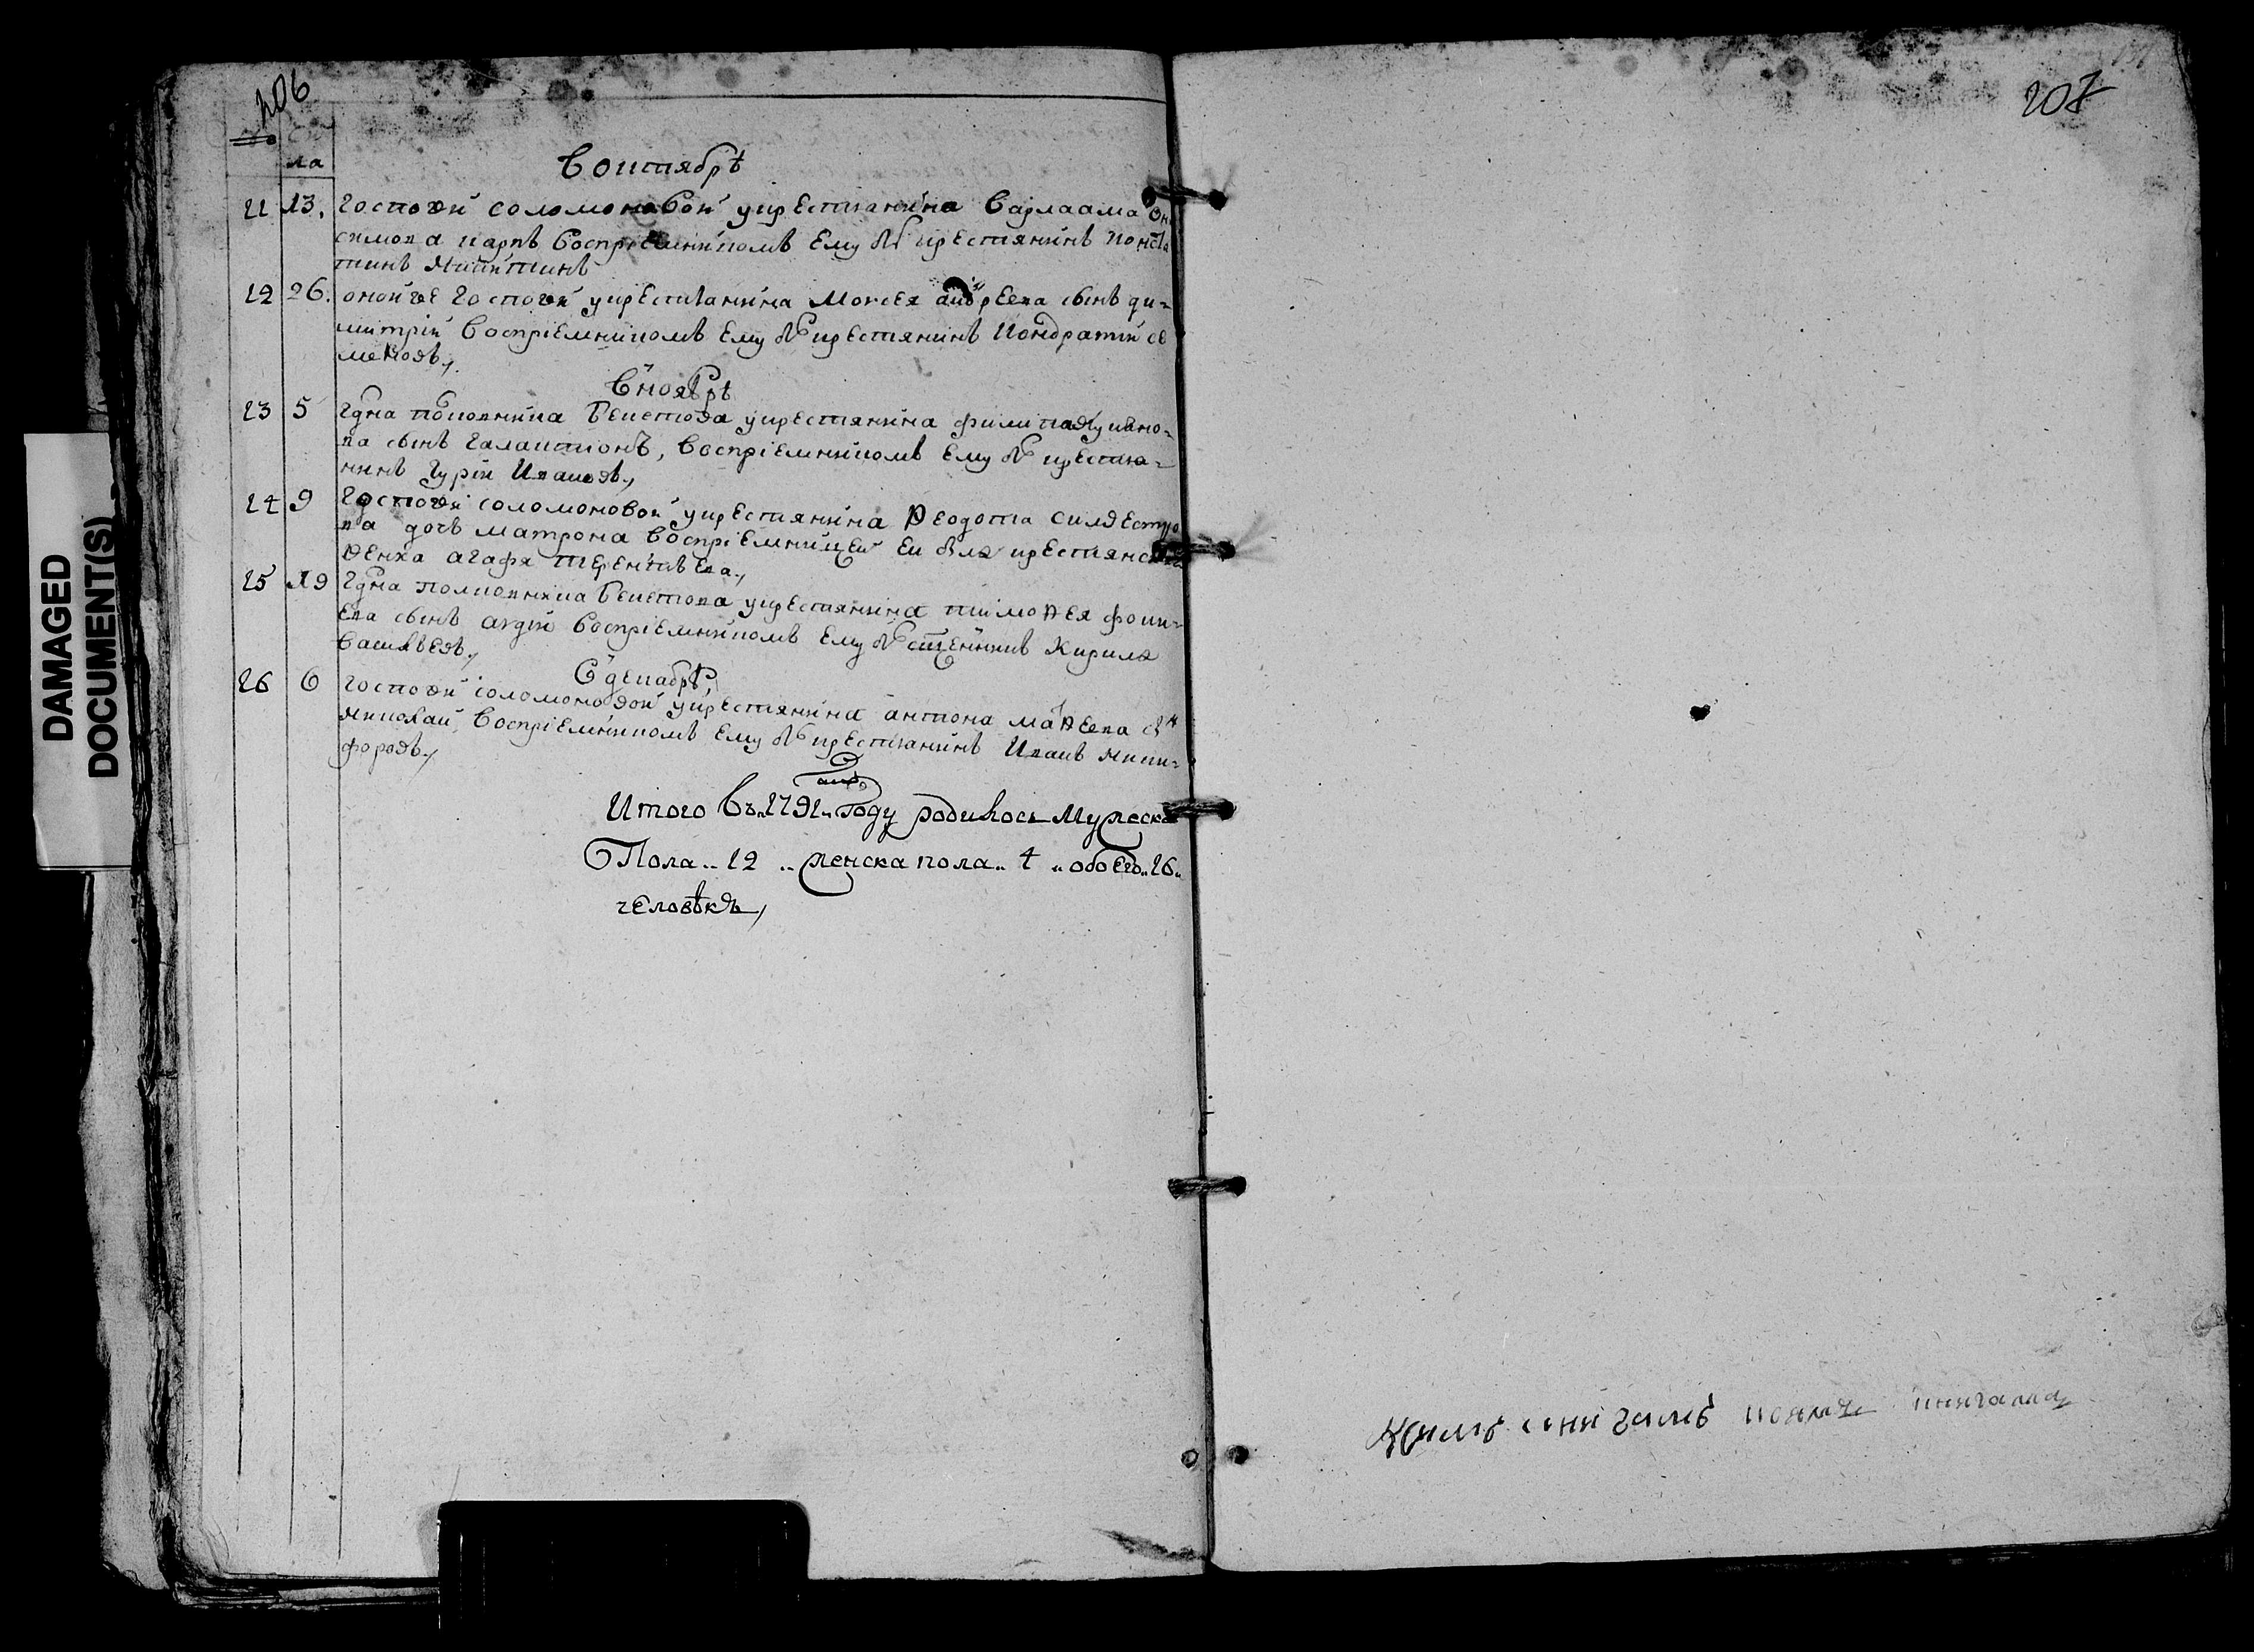 DAMAGED DOCUMENT(S)
206
№ Чи
ла
в октябрѣ
21 13. госпожи соломоновой у крестьянина варлаама Они
симова карпъ восприемникомъ ему бы крестянинъ константинъ никитинъ
22 26. оной же госпожи у крестьянина моисея андреева сынъ ди=
митрій восприемникомъ ему бы крестянинъ кондратій се
меновъ,
в ноябрѣ
23 5 гдна полковника бекетова у крестянина филипа лукьяно=
ва сынъ галактионъ, восприемникомъ ему бы крестья=
нинъ гурій ивановъ,
24 9 госпожи соломоновой у крестянина ѳеодота силвестро
ва дочь матрона восприемницей ей была крестянская
женка агафя терентьева,
25 19 гдна полковника бекетова у крестянина тимоѳея фоки=
ева сынъ авдій восприемникомъ ему бы сщенникъ кирилъ
васильевъ,
в декабрѣ
26 6 госпожи соломоновой у крестянина антона маѳеева снъ
николай, восприемникомъ ему бы крестьянинъ иванъ ники=
форовъ,
Итого въ 1791 году родилось мужеска
Пола 22 женска пола 4 обоего 26
человѣкъ,
207